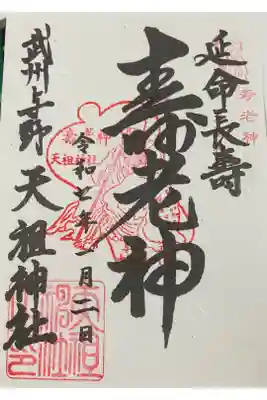 延命長壽
壽老神
令和七年一月二日
武州与野
天祖神社
寿老神
天祖神社